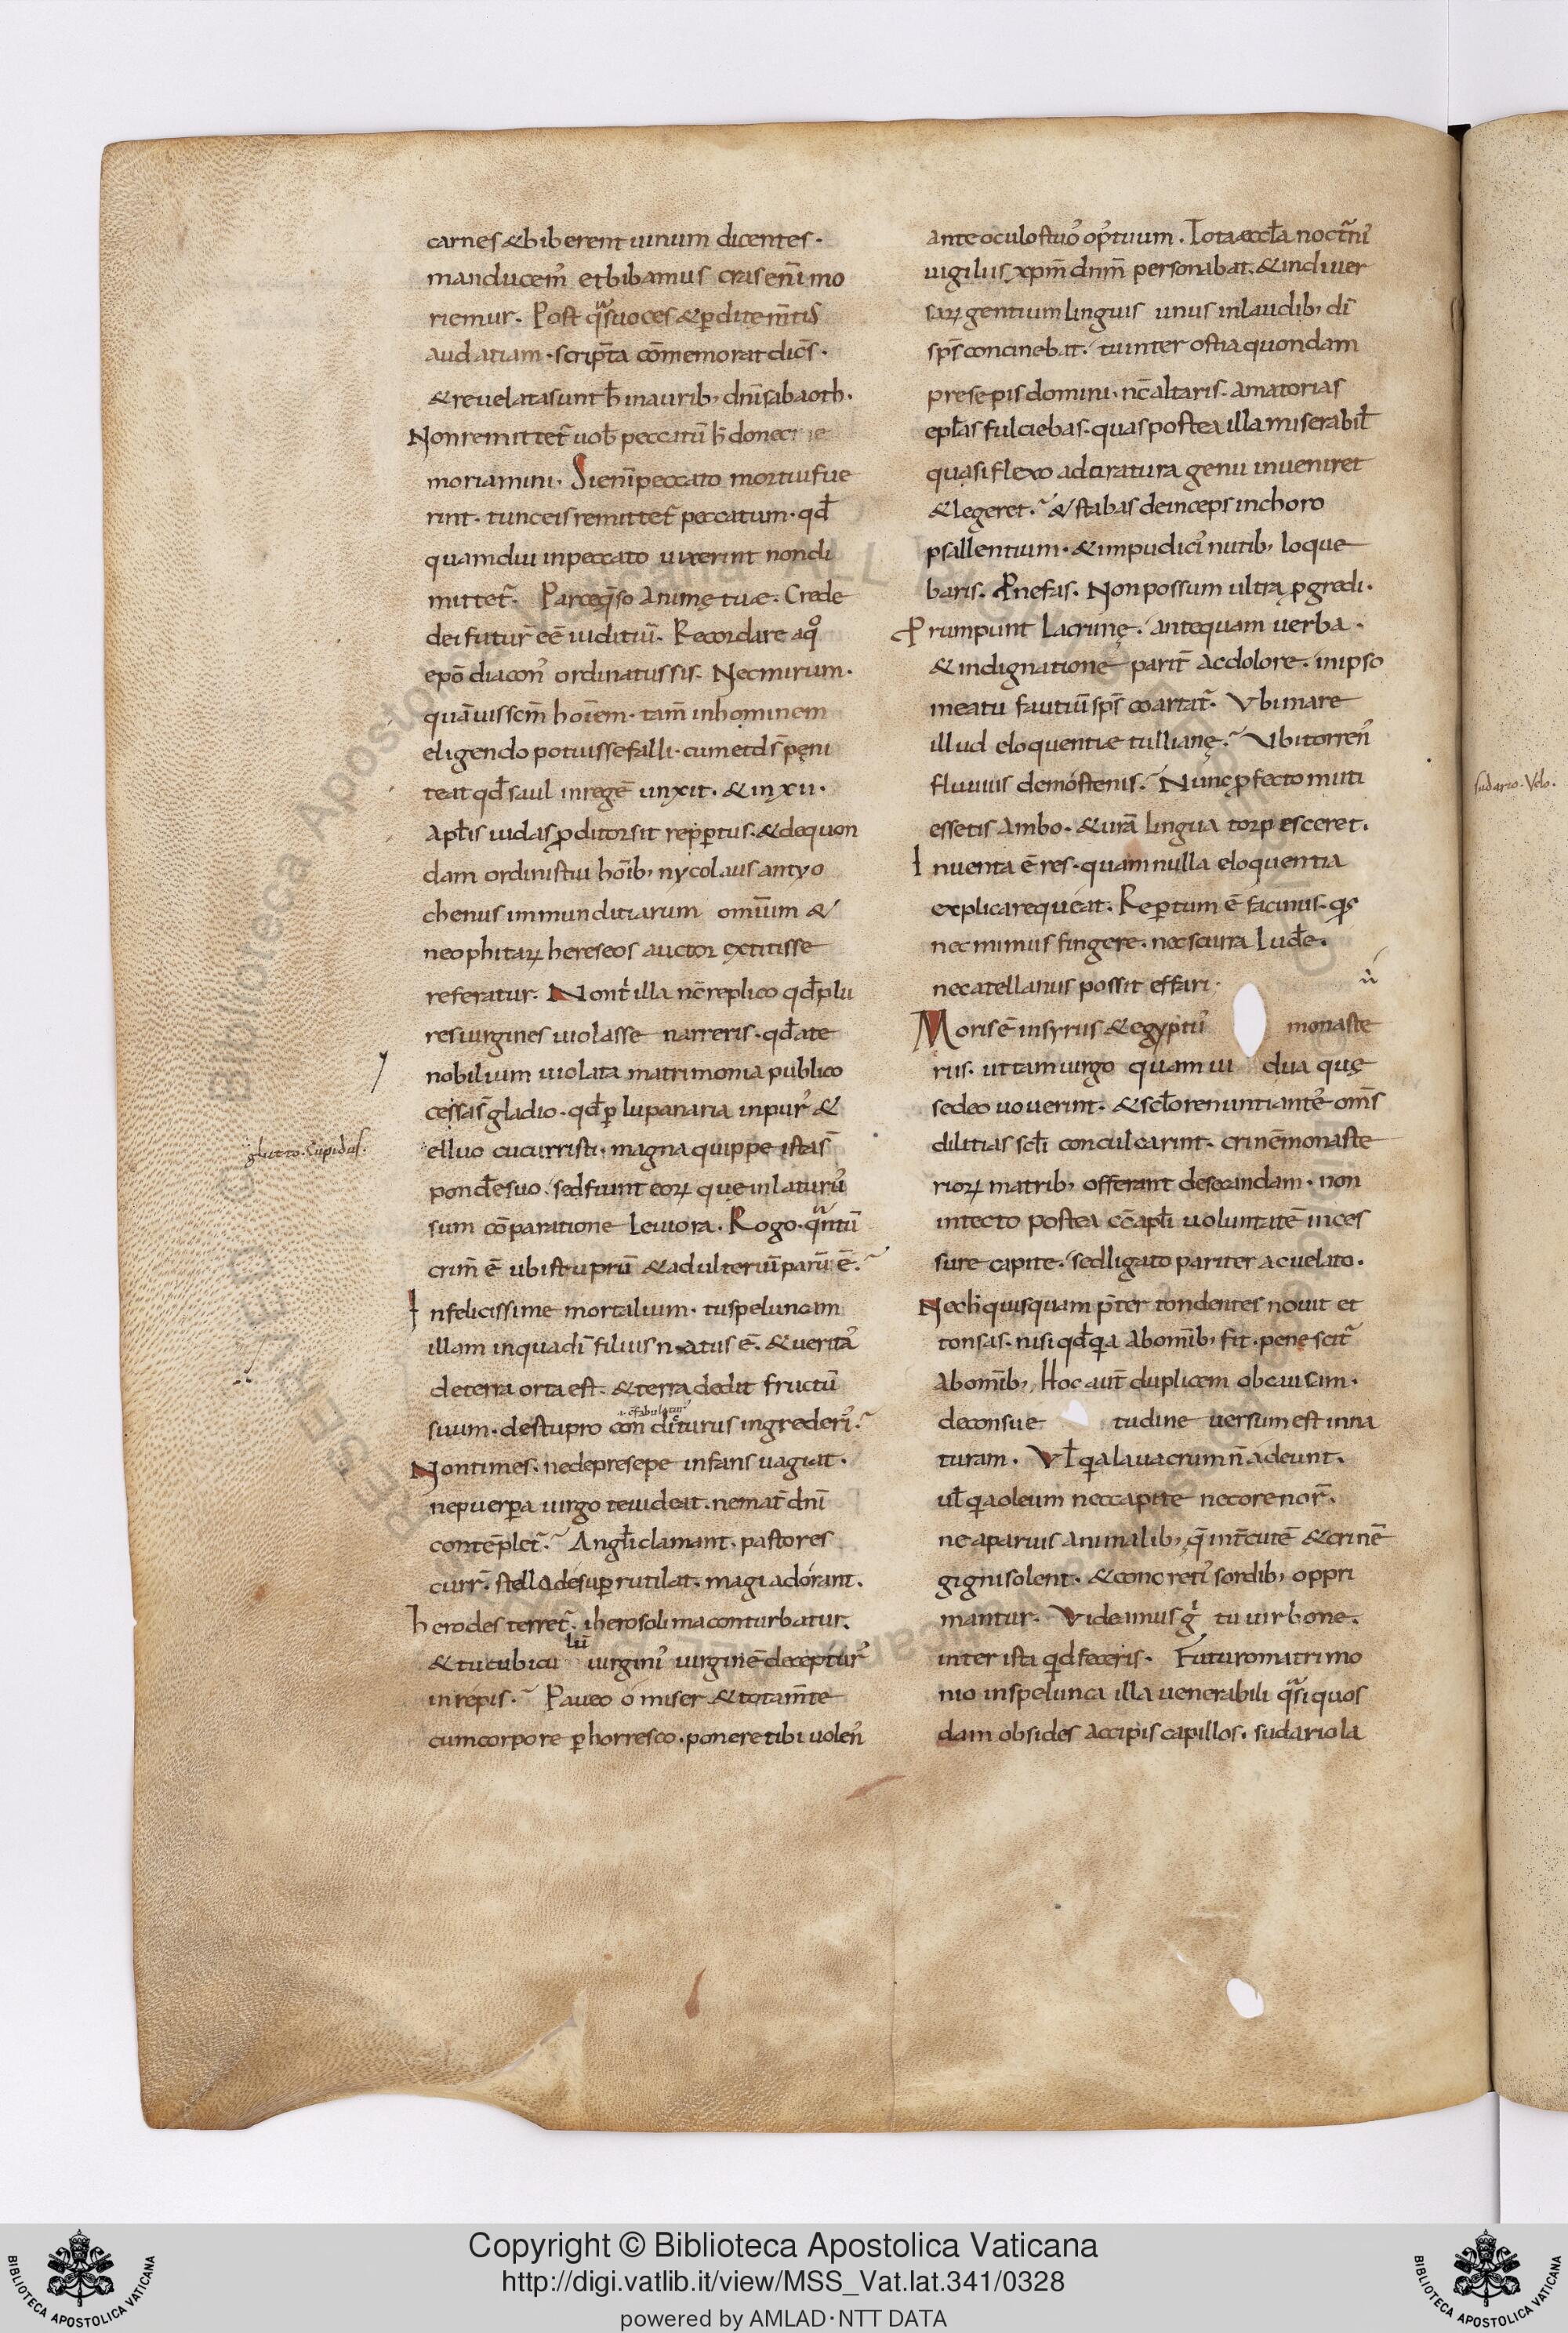 carnes & biberent uinum dicentes·
manducem᾽ et bibamus cras eni̅ mo
riemur· Post q̅suoces & p̲ditem̅tis
audatiam· scripta co̅memorat dic̅s·
& reuelata sunt h̅ in aurib; dni̅ sabaoth·
Non remittet̅ uob̅ peccatu̅ h̅ donec
moriamini· Si eni̅ peccato mortui fue
rint· tunc eis remittet̅ peccatum· qd̅
quamdiu in peccato uixerint non di
mittet̅· Parce q̅so animę tuae· Crede
dei futur̅ ee̅ iuditiu̅· Recordare a q°
epo̅ diacon᾽ ordinatus sis· Nec mirum·
qua̅uis scm̅ hoi̅em· tam̅ in hominem
eligendo potuisse falli· cum et ds̅ pęni
teat qd̅ saul in rege̅ unxit· & in xii·
apl̅is iudas p̲ditor sit rep̲p̲tus· & de quon
dam ordinis tui hoi̅b; nycolaus antyo
chenus immunditiarum omiu̅m &
neophitaꝝ hereseos auctor extitisse
referatur· Non t̅ illa nc̅ replico qd̅ plu
res uirgines uiolasse narreris· qd̅ a te
nobilium uiolata matrimonia publico
cęssas̅ gladio· qd̅ p̲ lupanaria inpur᾽ &
elluo cucurristi· magna quippe ista s̅
pond̅e suo· sed fiunt eoꝝ quę inlatur᾽
sum co̅paratione leuiora· Rogo· qn̅tu̅
crim̅ e̅ ubi stupru̅ & adulteriu̅ paru̅ e̅·
Infelicissime mortalium· tu speluncam
illam in qua di̅ filius natus e̅· & uerita᾽
de terra orta est· & terra dedit fructu̅
suum· de stupro con diturus ingrederi᾽·
.i. c̅fabulatur᾽
Non times· ne de presepe infans uagiat·
ne puerp̲a uirgo te uideat· ne mat̅ dni̅
conte̅plet̅· Angl̅i clamant· pastores
curr̅· stella desup̲ rutilat· magi adorant·
herodes terret̅· iherosolima conturbatur·
& tu cubicu lu̅ uirgini᾽ uirgine̅ deceptur᾽
inrepis· Paueo o miser & tota m̅te
cum corpore p̲horresco· ponere tibi uolen᾽
glutto. Cupidus.
ante oculos tuo᾽ op᾽ tuum· Tota eccl̅a noct̅ni᾽
uigiliis xpm̅ dnm̅ personabat· & in diuer
saꝝ gentium linguis unus in laudib; di̅
sps̅ concinebat· tu inter ostia quondam
presepis domini· nc̅ altaris· amatorias
epl̅as fulciebas· quas postea illa miserabil̅
quasi flexo adciratura genu inueniret
& legeret· & stabas deinceps in choro
psallentium· & impudici᾽ nutib; loque
baris· P̲nefas· Non possum ultra p̲gredi·
P̲rumpunt lacrimę· antequam uerba·
& indignatione parit̅ ac dolore· in ipso
meatu fautiu̅ sps̅ coartat̅· Vbi mare
illud eloquentiae tullianę· Vbi torren᾽
fluuius demostenis· Nunc p̲fecto muti
essetis ambo· & ura̅ lingua torpesceret·
Inuenta e̅ res· quam nulla eloquentia
explicare queat· Rep̲tum e̅ facinus· q̲s
nec mimus fingere· nec scurra lud̅e·
nec atellanus possit effari·
Moris e̅ in syrus & egypti᾽ monaste
riis· ut tam uirgo quam ui dua quę
se deo uouerint· & scl̅o renuntiante᾽ om̅s
dilitias scl̅i conculcarint· crine̅ monaste
rioꝝ matrib; offerant desecandam· non
intecto postea c̅e apl̅i uoluntate̅ inces
sure capite· sed ligato pariter ac uelato·
Nec h̅ quisquam p̅ter tondentes nouit et
tonsas· nisi qd̅ q̲a ab omi̅b; fit· pene scit̅
ab omi̅b; Hoc aut̅ duplicem ob causam·
de consue tudine uersum est in na
turam· Vl̅ q̲a lauacrum n̅ adeunt·
ul̅ q̲a oleum nec capite nec ore nor̅·
ne a paruis animalib; q̅ int̅ cute̅ & crine̅
gigni solent· & concreti᾽ sordib; oppri
mantur· Videamus g̅ tu uir bone·
inter ista q̲d feceris· Futuro matrimo
nio in spelunca illa uenerabili q̅si quos
dam obsides accipis capillos· sudariola
sudario. Velo.
Copyright © Biblioteca Apostolica Vaticana
http://digi.vatlib.it/view/MSS_Vat.lat.341/0328
powered by AMLAD·NTT DATA
BIBLIOTECA APOSTOLICA VATICANA
BIBLIOTECA APOSTOLICA VATICANA